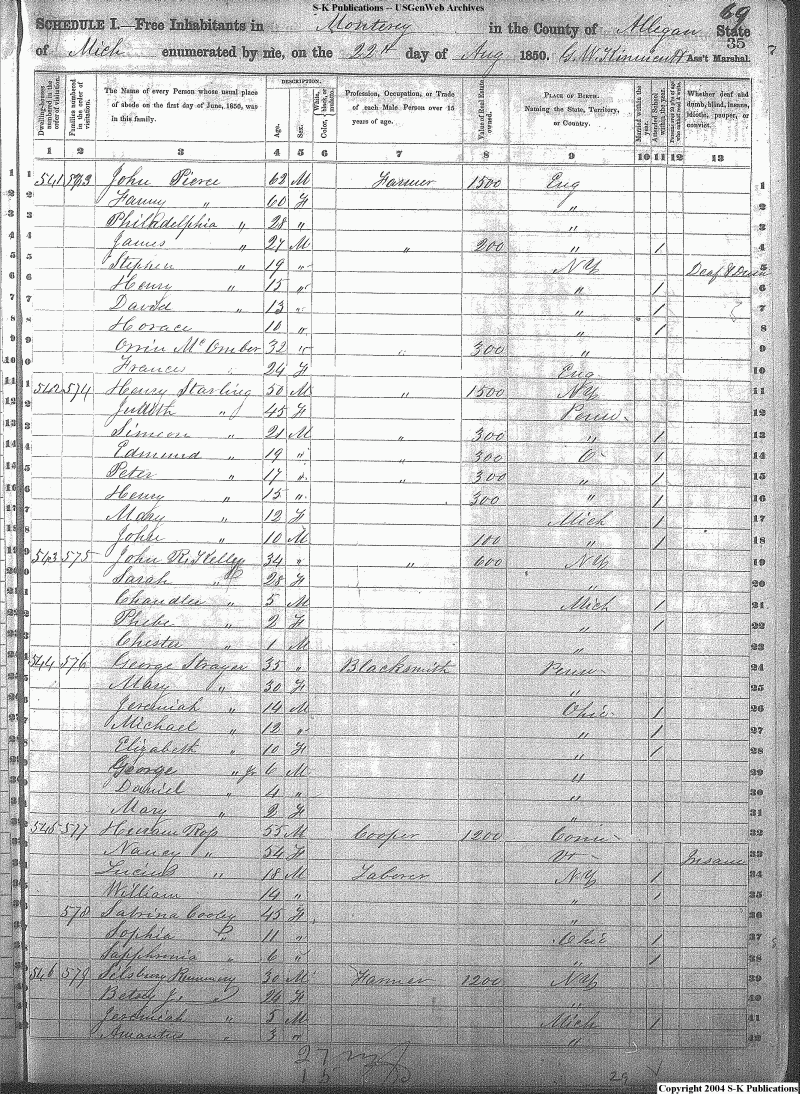 S-K Publications -- USGenWeb Archives
69
SCHEDULE I.—Free Inhabitants in Monterey in the County of Allegan State
35
of Mich enumerated by me, on the 22d day of Aug 1850. G. W. Ass't Marshal.
Dwelling-houses numbered in the order of visitation. Families numbered in the order of visitation. The Name of every Person whose usual place of abode on the first day of June, 1850, was in this family. DESCRIPTION. Age. Sex. Color, White, black, or mulatto. Profession, Occupation, or Trade of each Male Person over 15 years of age. Value of Real Estate owned. PLACE OF BIRTH. Naming the State, Territory, or Country. Married within the year. Attended School within the year. Whether deaf and dumb, blind, insane, idiotic, pauper, or convict.
1 2 3 4 5 6 7 8 9 10 11 12 13
1 541 573 John Pierce 62 M Farmer 1500 Eng 1
2 Fanny " 60 F " 2
3 Philadelphia " 28 " " 3
4 James " 27 M " 200 " / 4
5 Stephen " 19 " NY Deaf & Dum 5
6 Henry " 15 " " / 6
7 David " 13 " " / 7
8 Horace 10 " " / 8
9 Orrin McOmber 32 " " 300 " 9
10 Frances " 24 F Eng 10
11 542 574 Henry Starling 50 M " 1500 NY 11
12 Judith " 45 F Penn 12
13 Simeon " 21 M " 300 " / 13
14 Edmund " 19 " " 300 O / 14
15 Peter " 17 " " 300 " / 15
16 Henry " 15 " 300 " / 16
17 Mary " 12 F Mich / 17
18 John " 10 M 100 " / 18
19 543 575 John R. Kelly 34 " " 600 NY 19
20 Sarah " 28 F " 20
21 Chandler " 5 M Mich / 21
22 Phebe " 2 F " / 22
23 Chester " 1 M " 23
24 544 576 George Strayer 35 " Blacksmith Penn 24
25 Mary " 30 F " 25
26 Jeremiah " 14 M Ohio / 26
27 Michael " 12 " " / 27
28 Elizabeth " 10 F " / 28
29 George " Jr 6 M " 29
30 Daniel " 4 " " 30
31 Mary " 2 F " 31
32 545 577 Huram Ross 55 M Cooper 1200 Conn 32
33 Nancy " 54 F Vt Insane 33
34 Lucius " 18 M Laborer NY / 34
35 William 14 " " / 35
36 578 Sabrina Cooley 45 F " 36
37 Sophia " 11 " Ohio / 37
38 Sapphronia " 6 " " / 38
39 546 579 Silsbury Rummery 30 M Farmer 1200 NY 39
40 Betsey J. " 24 F " 40
41 Jeremiah " 5 M Mich / 41
42 Amantus " 3 " " 42
27 M
15
29
Copyright 2004 S-K Publications